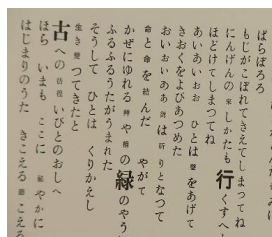 ばらぼろろ
もじがこぼれてきえてしまってね
にんげんの 来 しかたも 行 くすへ
ほどけてしまってね
あいあいおお ひとは 聲 をあげて
きおくをよびあつめた
おいおいああ 祈 りとなつて
命 と 命 を 結 んだ やがて
かぜにゆれる や の 緑 のやう
ふるふるうたがうまれた
そうして ひとは くりかえし
生 き 変 つてきたと
古 への いびとのおしへ
ほら いまも ここに やかに
はじまりのうた きこえる こえる